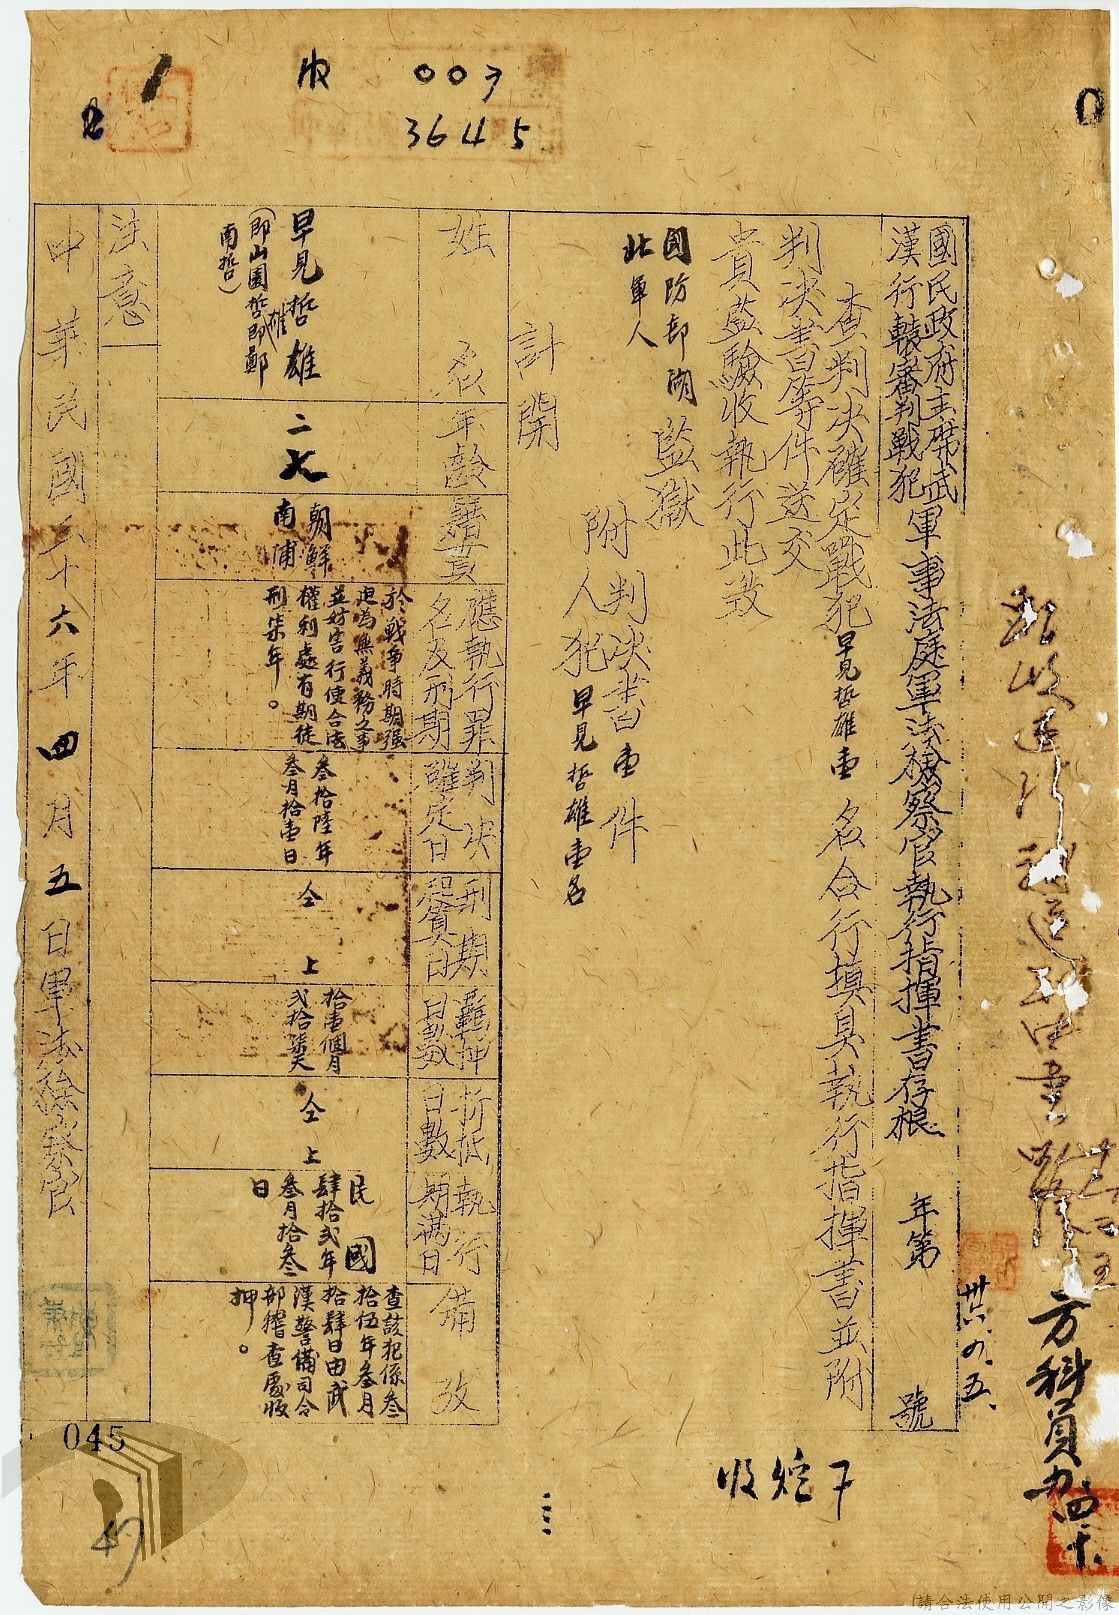 收 003
3645
國民政府主席武
漢行轅審判戰犯
軍事法庭軍法檢察官執行指揮書存根
年第 號
卅六.四.五.
查判決確定戰犯早見哲雄壹名合行填具執行指揮書並附
判決書等件送交
貴監驗收執行此致
國防部湖
北軍人
監獄
附判決書壹件
人犯早見哲雄壹名
計開
姓名
年齡
籍貫
應執行罪
名及刑期
判決
確定日
刑期
起算日
羈押
日數
折抵
日數
執行
期滿日
備攷
早見哲雄
(即山園哲雄即鄭
南哲)
二七
朝鮮
南浦
於戰爭時期強
迫為無義務之事
並妨害行使合法
權利處有期徒
刑柒年。
叁拾陸年
叁月拾壹日
仝上
拾壹個月
貳拾柒天
仝上
民國
肆拾貳年
叁月拾叁
日
查該犯係叁
拾伍年叁月
拾肆日由武
漢警備司令
部稽查處收
押。
注意
中華民國三十六年四月五日軍法檢察官
方科員
045
請合法使用公開之影像